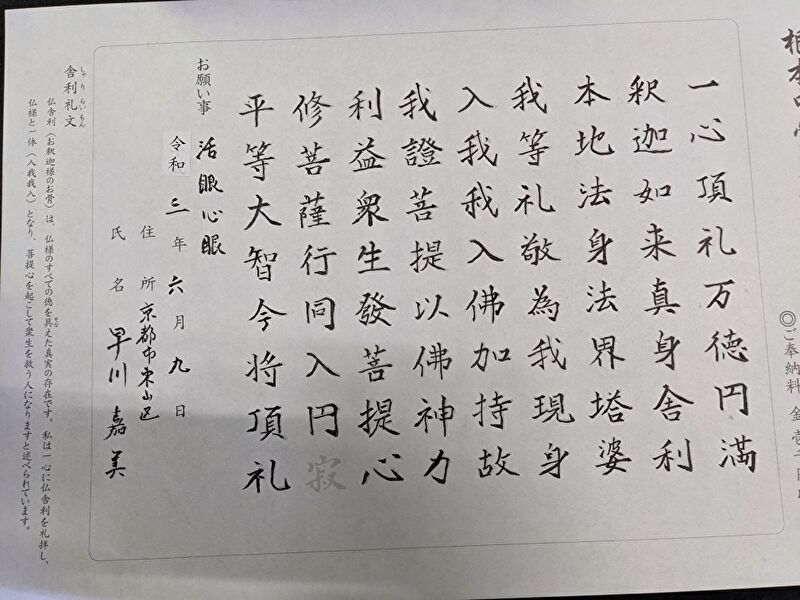 一心頂礼万徳円満
釈迦如来真身舎利
本地法身法界塔婆
我等礼敬為我現身
入我我入佛加持故
我證菩提以佛神力
利益衆生發菩提心
修菩薩行同入円寂
平等大智今将頂礼
お願い事 活眼心眼
令和三年六月九日
住所 京都市東山区
氏名 早川嘉美
舎利礼文
しゃりらいもん
仏舎利（お釈迦様のお骨）は、仏様のすべての徳を具えた真実の存在です。私は一心に仏舎利を礼拝し、
仏様と一体（入我我入）となり、菩提心を起こして衆生を救う人になりますと述べられています。
◎ご奉納料 金壱